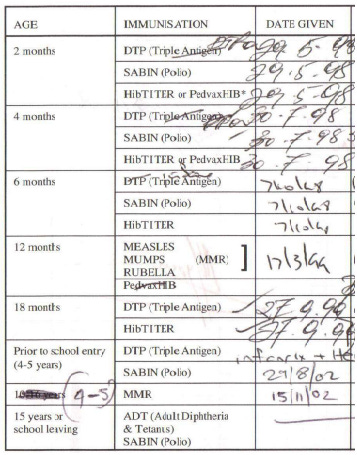 AGE IMMUNISATION DATE GIVEN
2 months DTP (Triple Antigen) 29.5-98
SABIN (Polio) 29.5-98
HibTITER or PedvaxHIB* 29.5-98
4 months DTP (Triple Antigen) 30-7-98
SABIN (Polio) 30-7-98
HibTITER or PedvaxHIB 30-7-98
6 months DTP (Triple Antigen)
SABIN (Polio)
HibTITER
12 months MEASLES
MUMPS (MMR) ]
RUBELLA
PedvaxHIB
18 months DTP (Triple Antigen) 27.9.99
HibTITER 27.9.99
Prior to school entry DTP (Triple Antigen) infanrix +
(4-5 years) SABIN (Polio) 29/8/02
(4-5) MMR 15/11/02
15 years or ADT (Adult Diphtheria
school leaving & Tetanus)
SABIN (Polio)